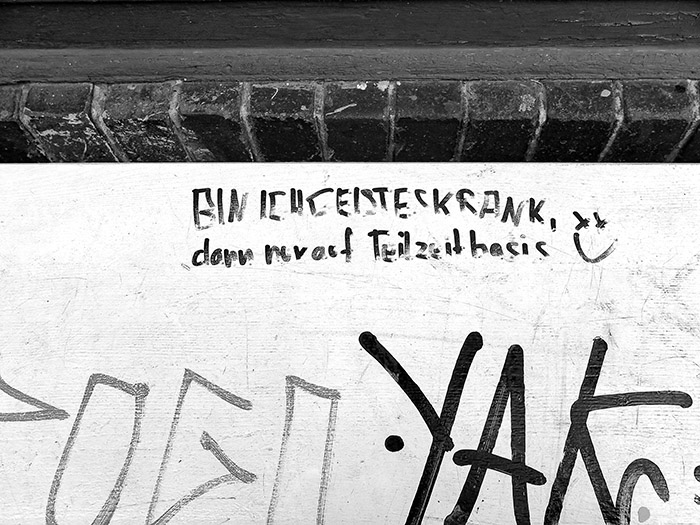 BIN ICH GEISTESKRANK,
dann nur auf Teilzeitbasis
YAK